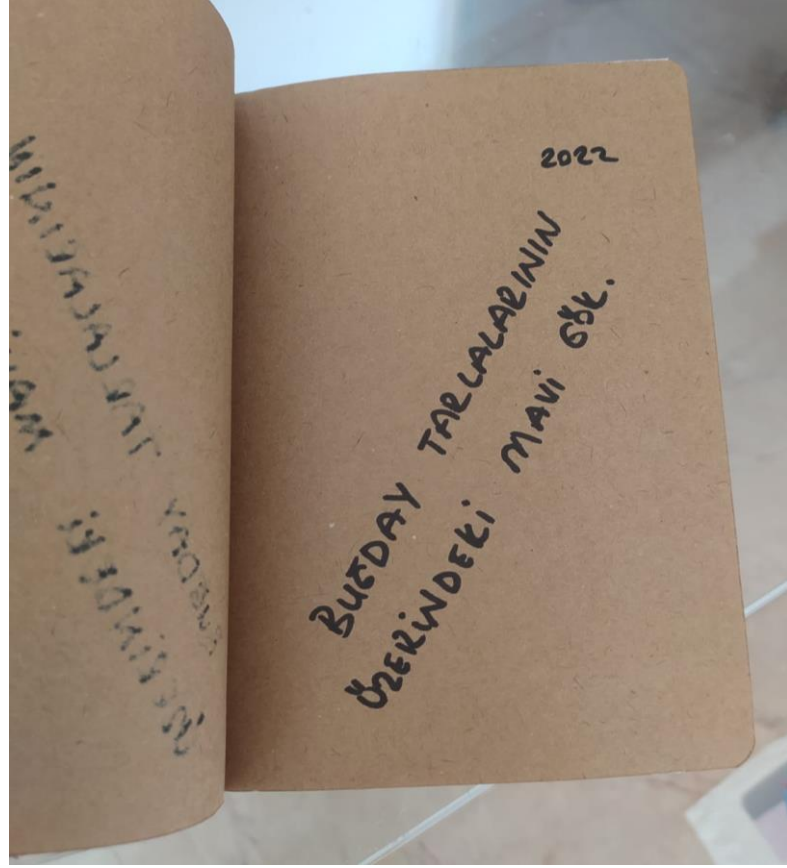 2022
BUĞDAY TARLALARININ
ÜZERİNDEKİ MAVİ GÖK.